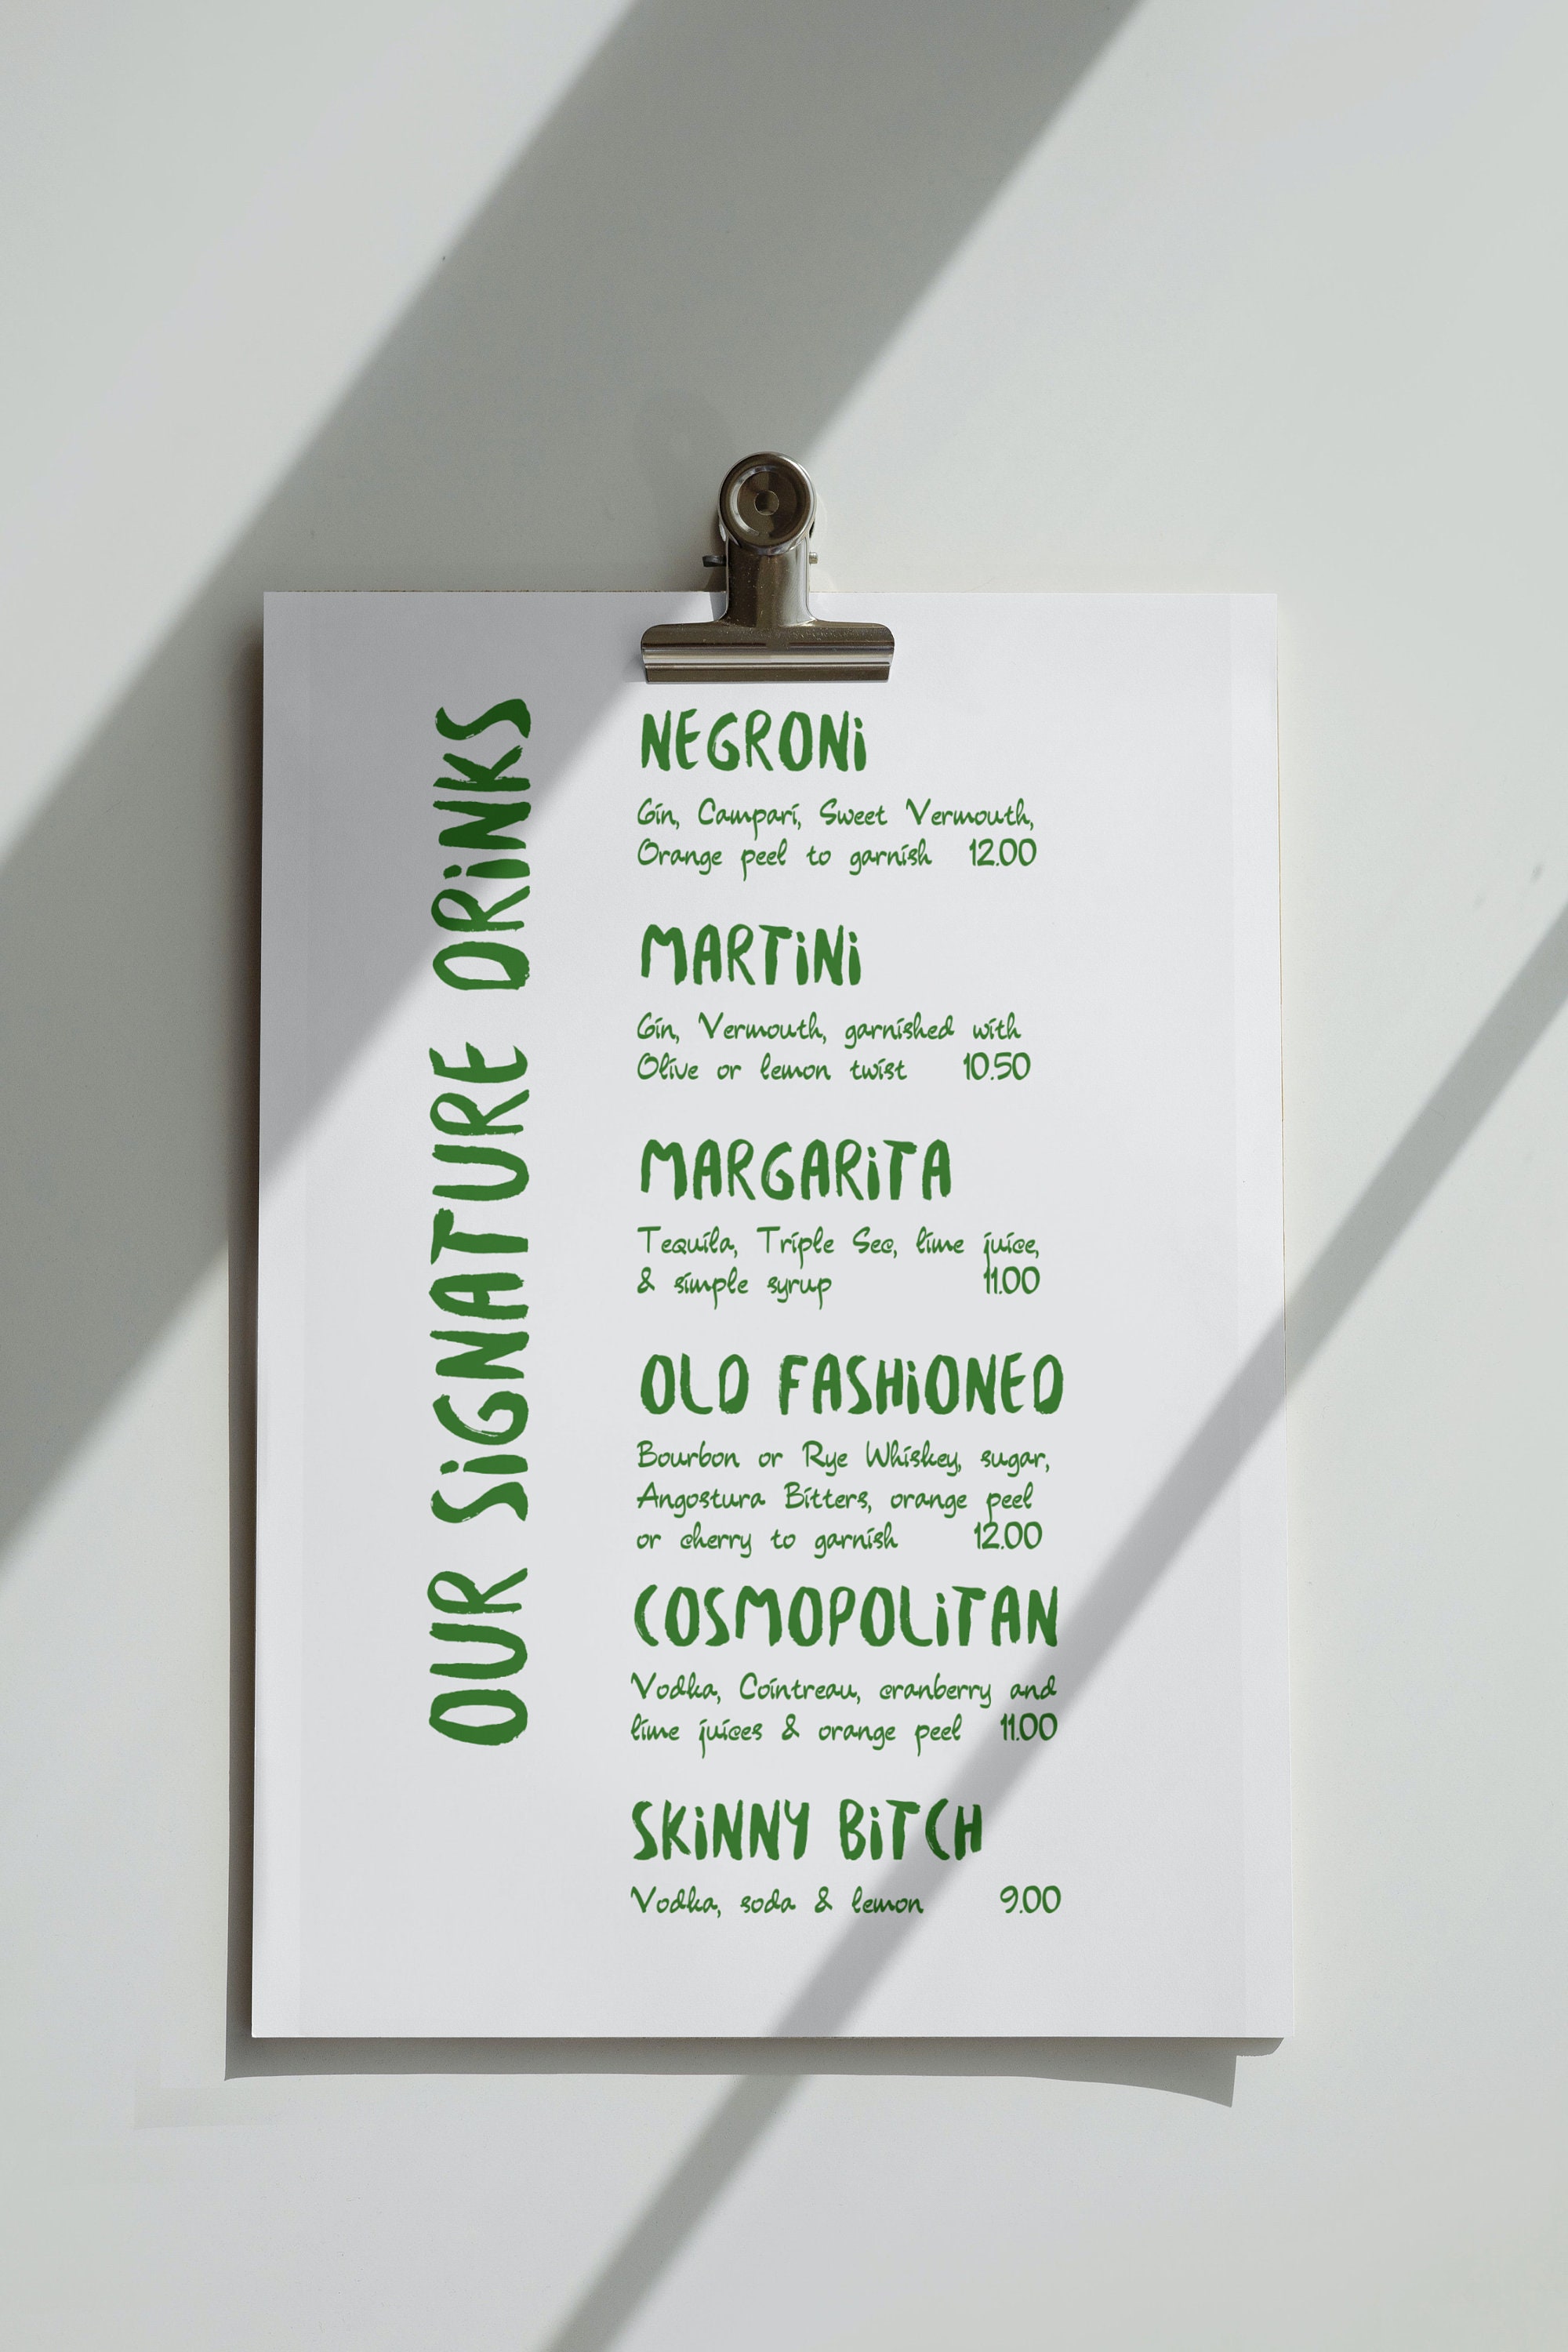 OUR SiGNATURE DRiNKS
NEGRONi
Gin, Campari, Sweet Vermouth,
Orange peel to garnish 12.00
MARTiNi
Gin, Vermouth, garnished with
Olive or lemon twist 10.50
MARGARiTA
Tequila, Triple Sec, lime juice,
& simple syrup 11.00
OLD FASHiONED
Bourbon or Rye Whiskey, sugar,
Angostura Bitters, orange peel
or cherry to garnish 12.00
COSMOPOLiTAN
Vodka, Cointreau, cranberry and
lime juices & orange peel 11.00
SKiNNY BiTCH
Vodka, soda & lemon 9.00